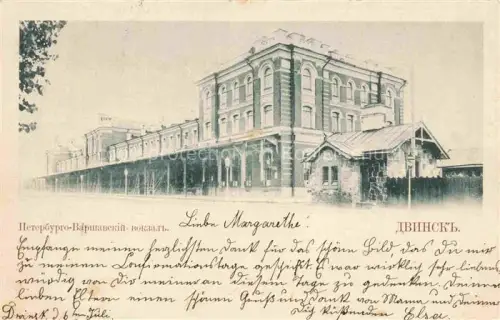 Петербурго-Варшавскій вокзалъ.
ДВИНСКЪ.
Liebe Margarethe!
Empfange meinen herzlichsten Dank für das schöne Bild das Du mir
zu meinem Confirmationstage geschickt. Es war wirklich sehr liebens
würdig von dir meiner an diesem Tage zu gedenken. Deinen
lieben Eltern einen schönen Gruß und Dank von Mama und deiner
Dich küssenden Elsa.
Dwinsk d 6ten Juli.